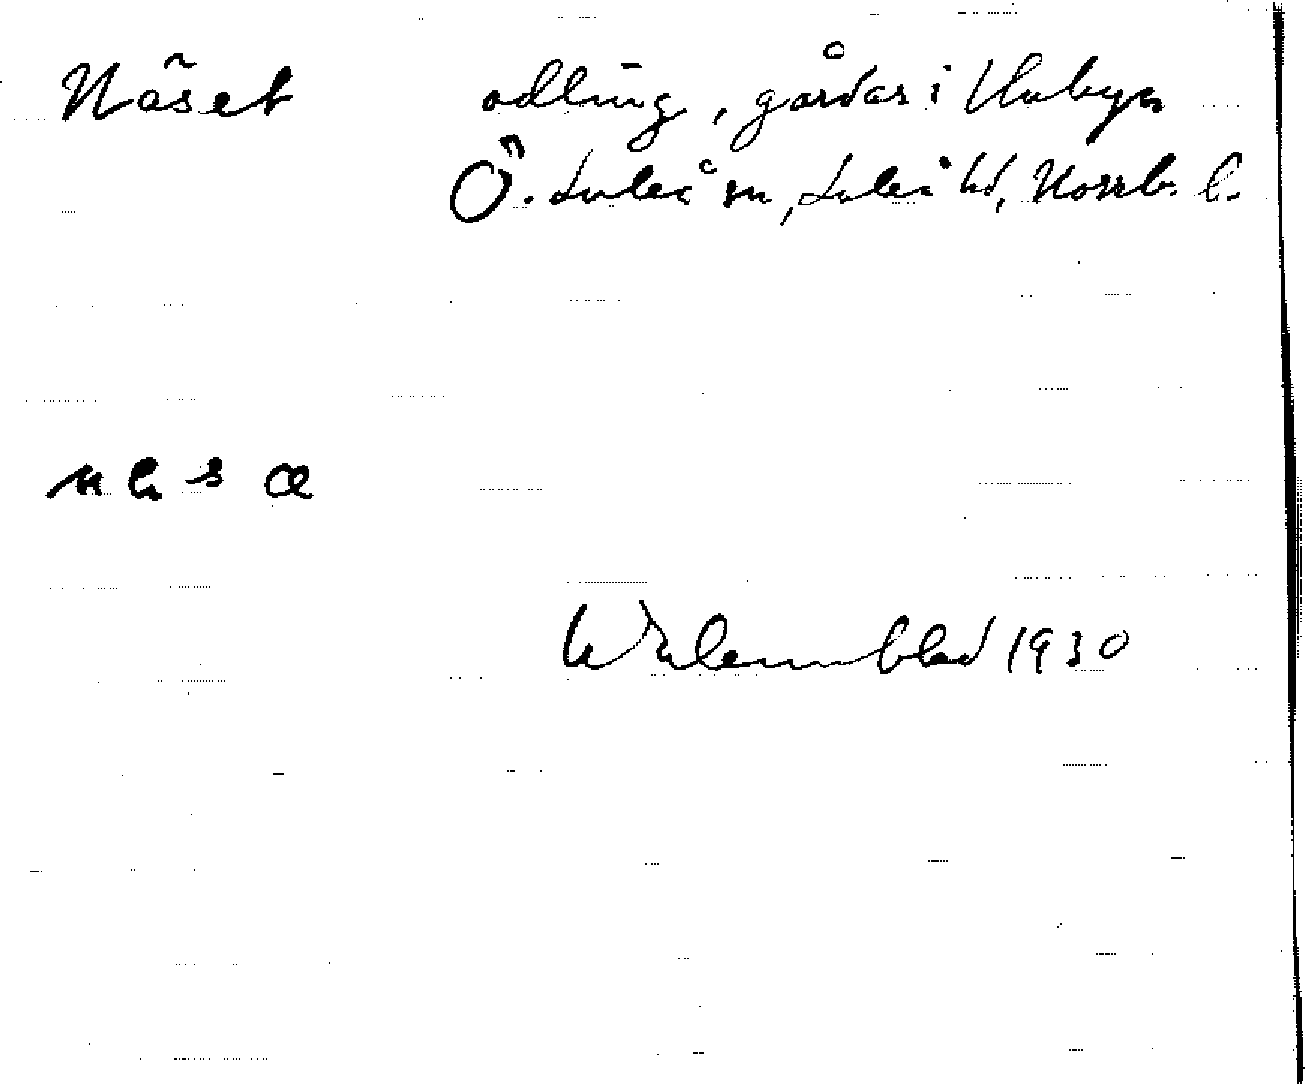 Näset odling, gårdar i Unbyn
Ö. Luleå sn, Luleå hd, Norrb. l.
Wulennblad 1930